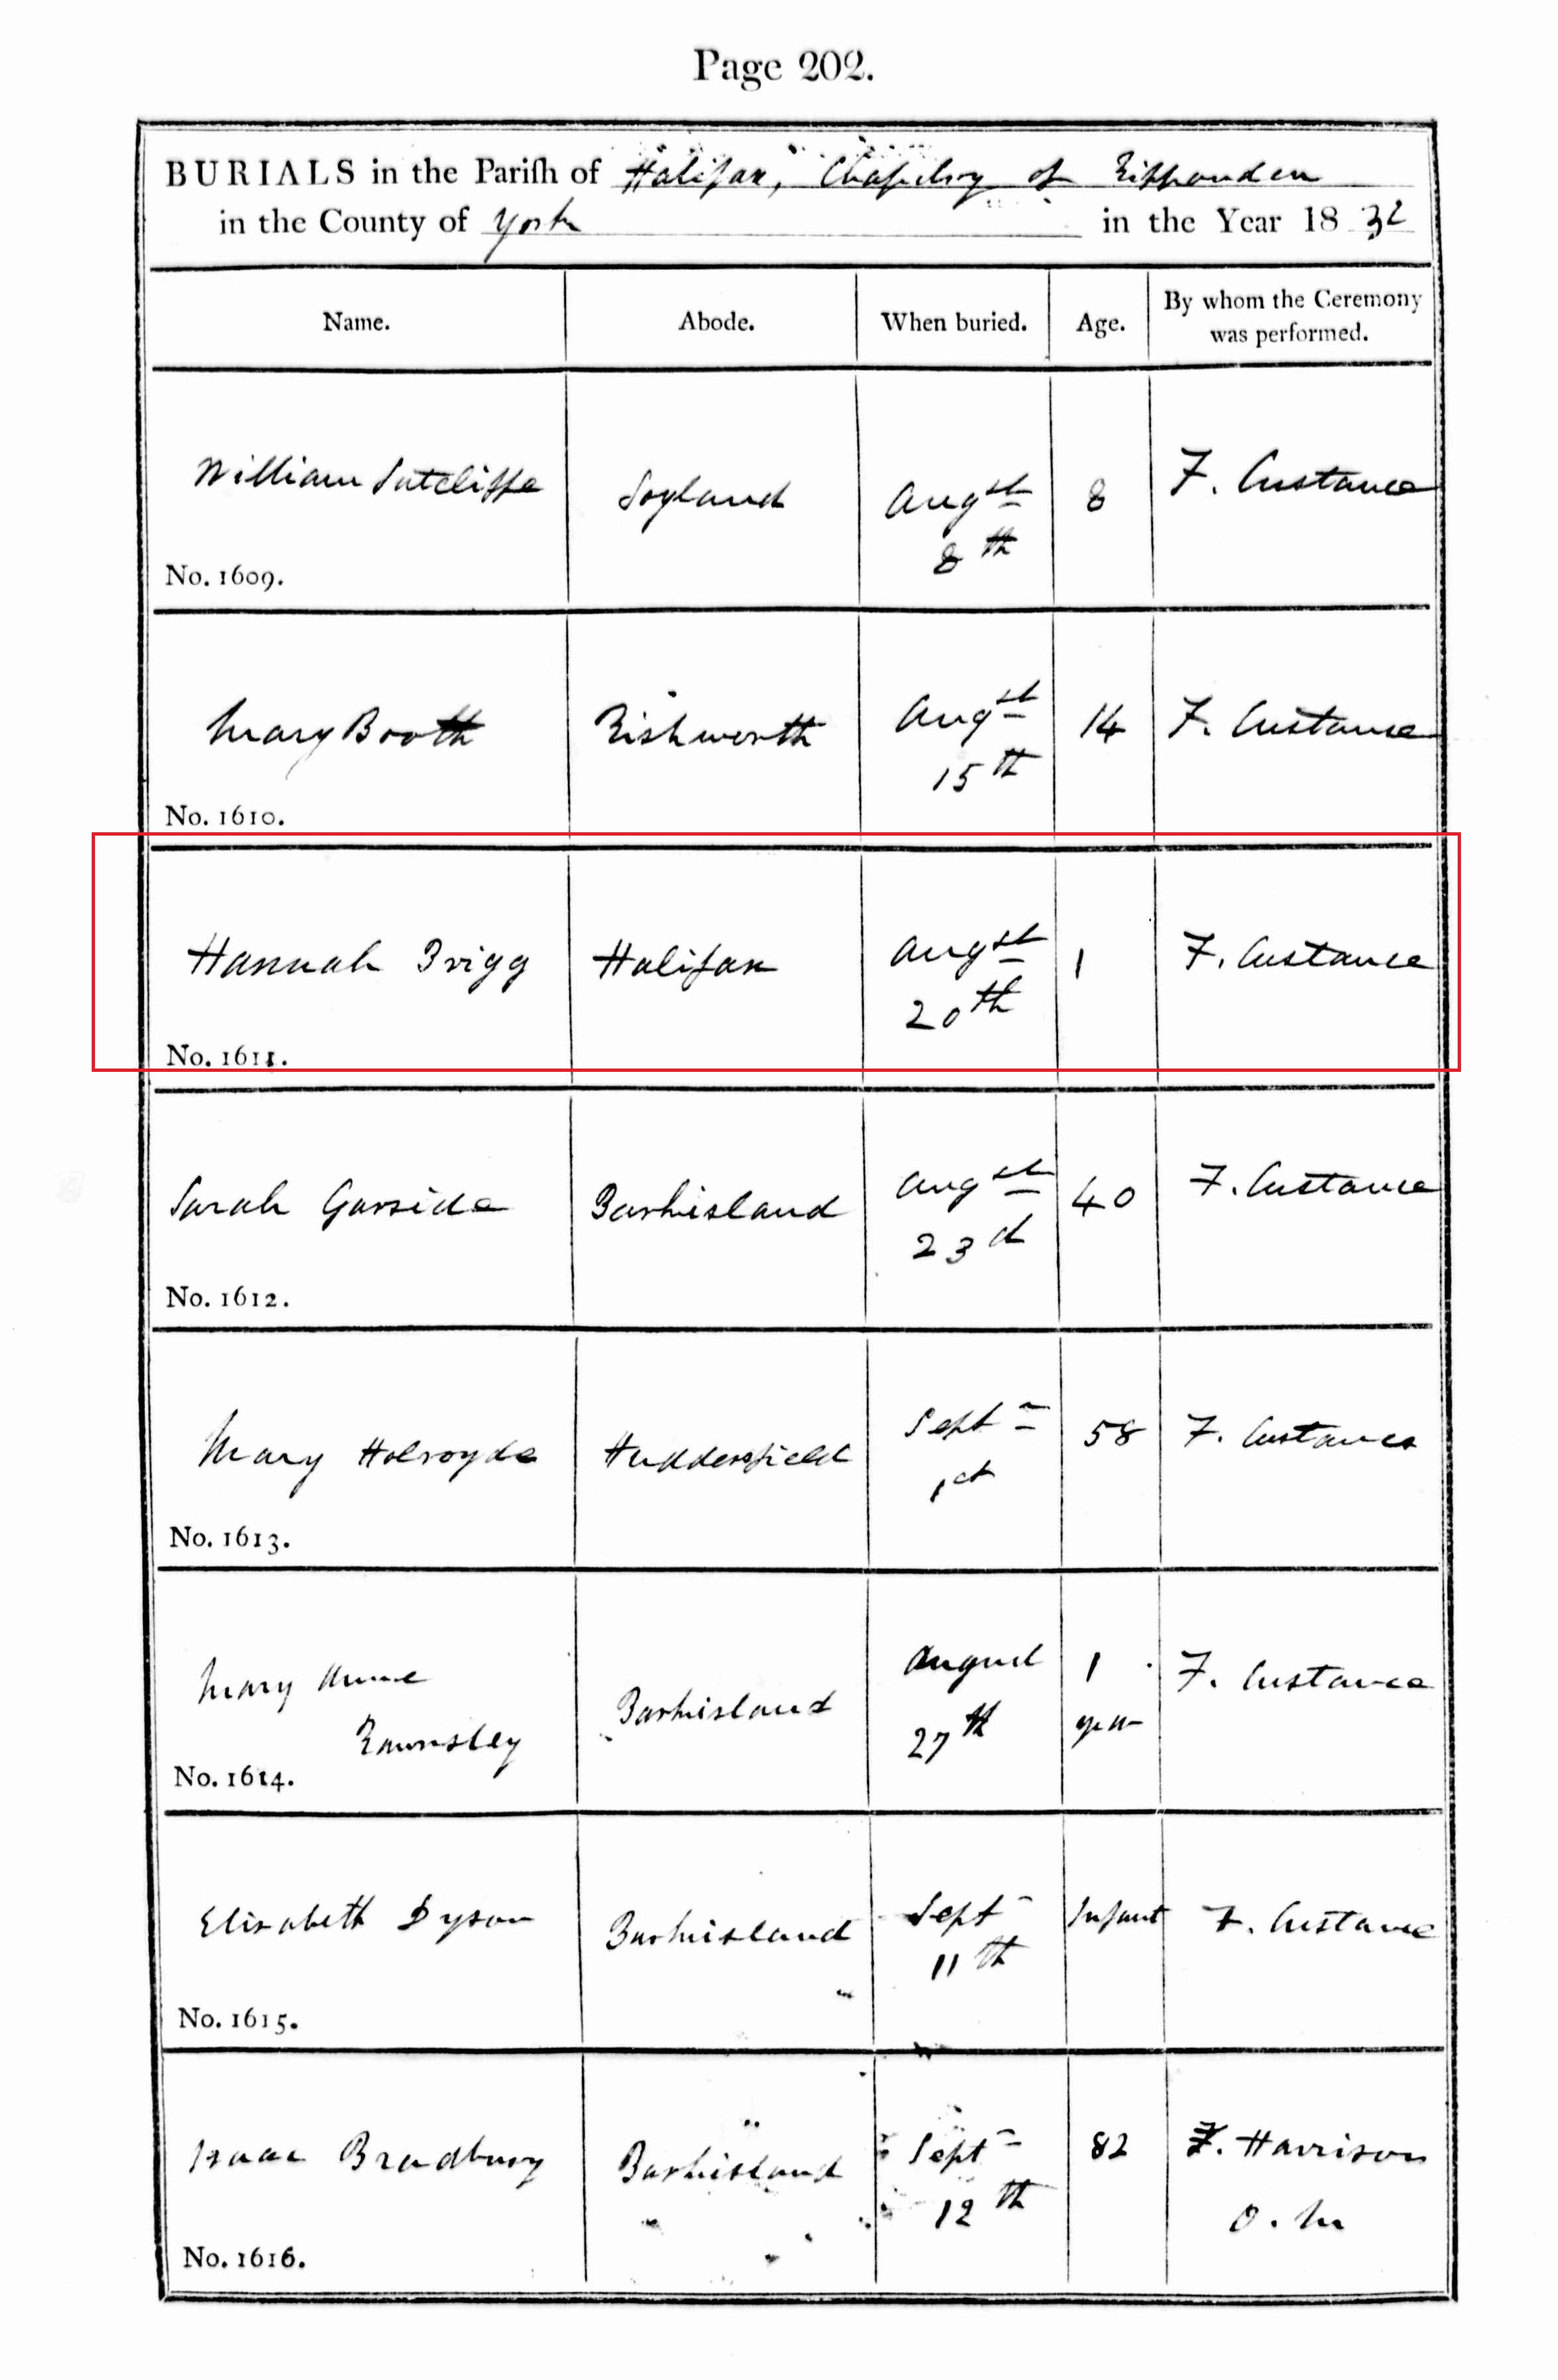 Page 202.
BURIALS in the Pariſh of Halifax, Chapelry of Ripponden
in the County of York in the Year 1832
Name. Abode. When buried. Age. By whom the Ceremony was performed.
William Sutcliffe Soyland Augst 8th 8 F. Custance
No. 1609.
Mary Booth Rishworth Augst 15th 14 F. Custance
No. 1610.
Hannah Brigg Halifax Augst 20th 1 F. Custance
No. 1611.
Sarah Garside Barkisland Augst 23d 40 F. Custance
No. 1612.
Mary Holroyde Huddersfield Septr 1st 58 F. Custance
No. 1613.
Mary Anne Rawnsley Barkisland August 27th 1 year F. Custance
No. 1614.
Elizabeth Dyson Barkisland Septr 11th Infant F. Custance
No. 1615.
Isaac Bradbury Barkisland Septr 12th 82 F. Harrison
O. M
No. 1616.